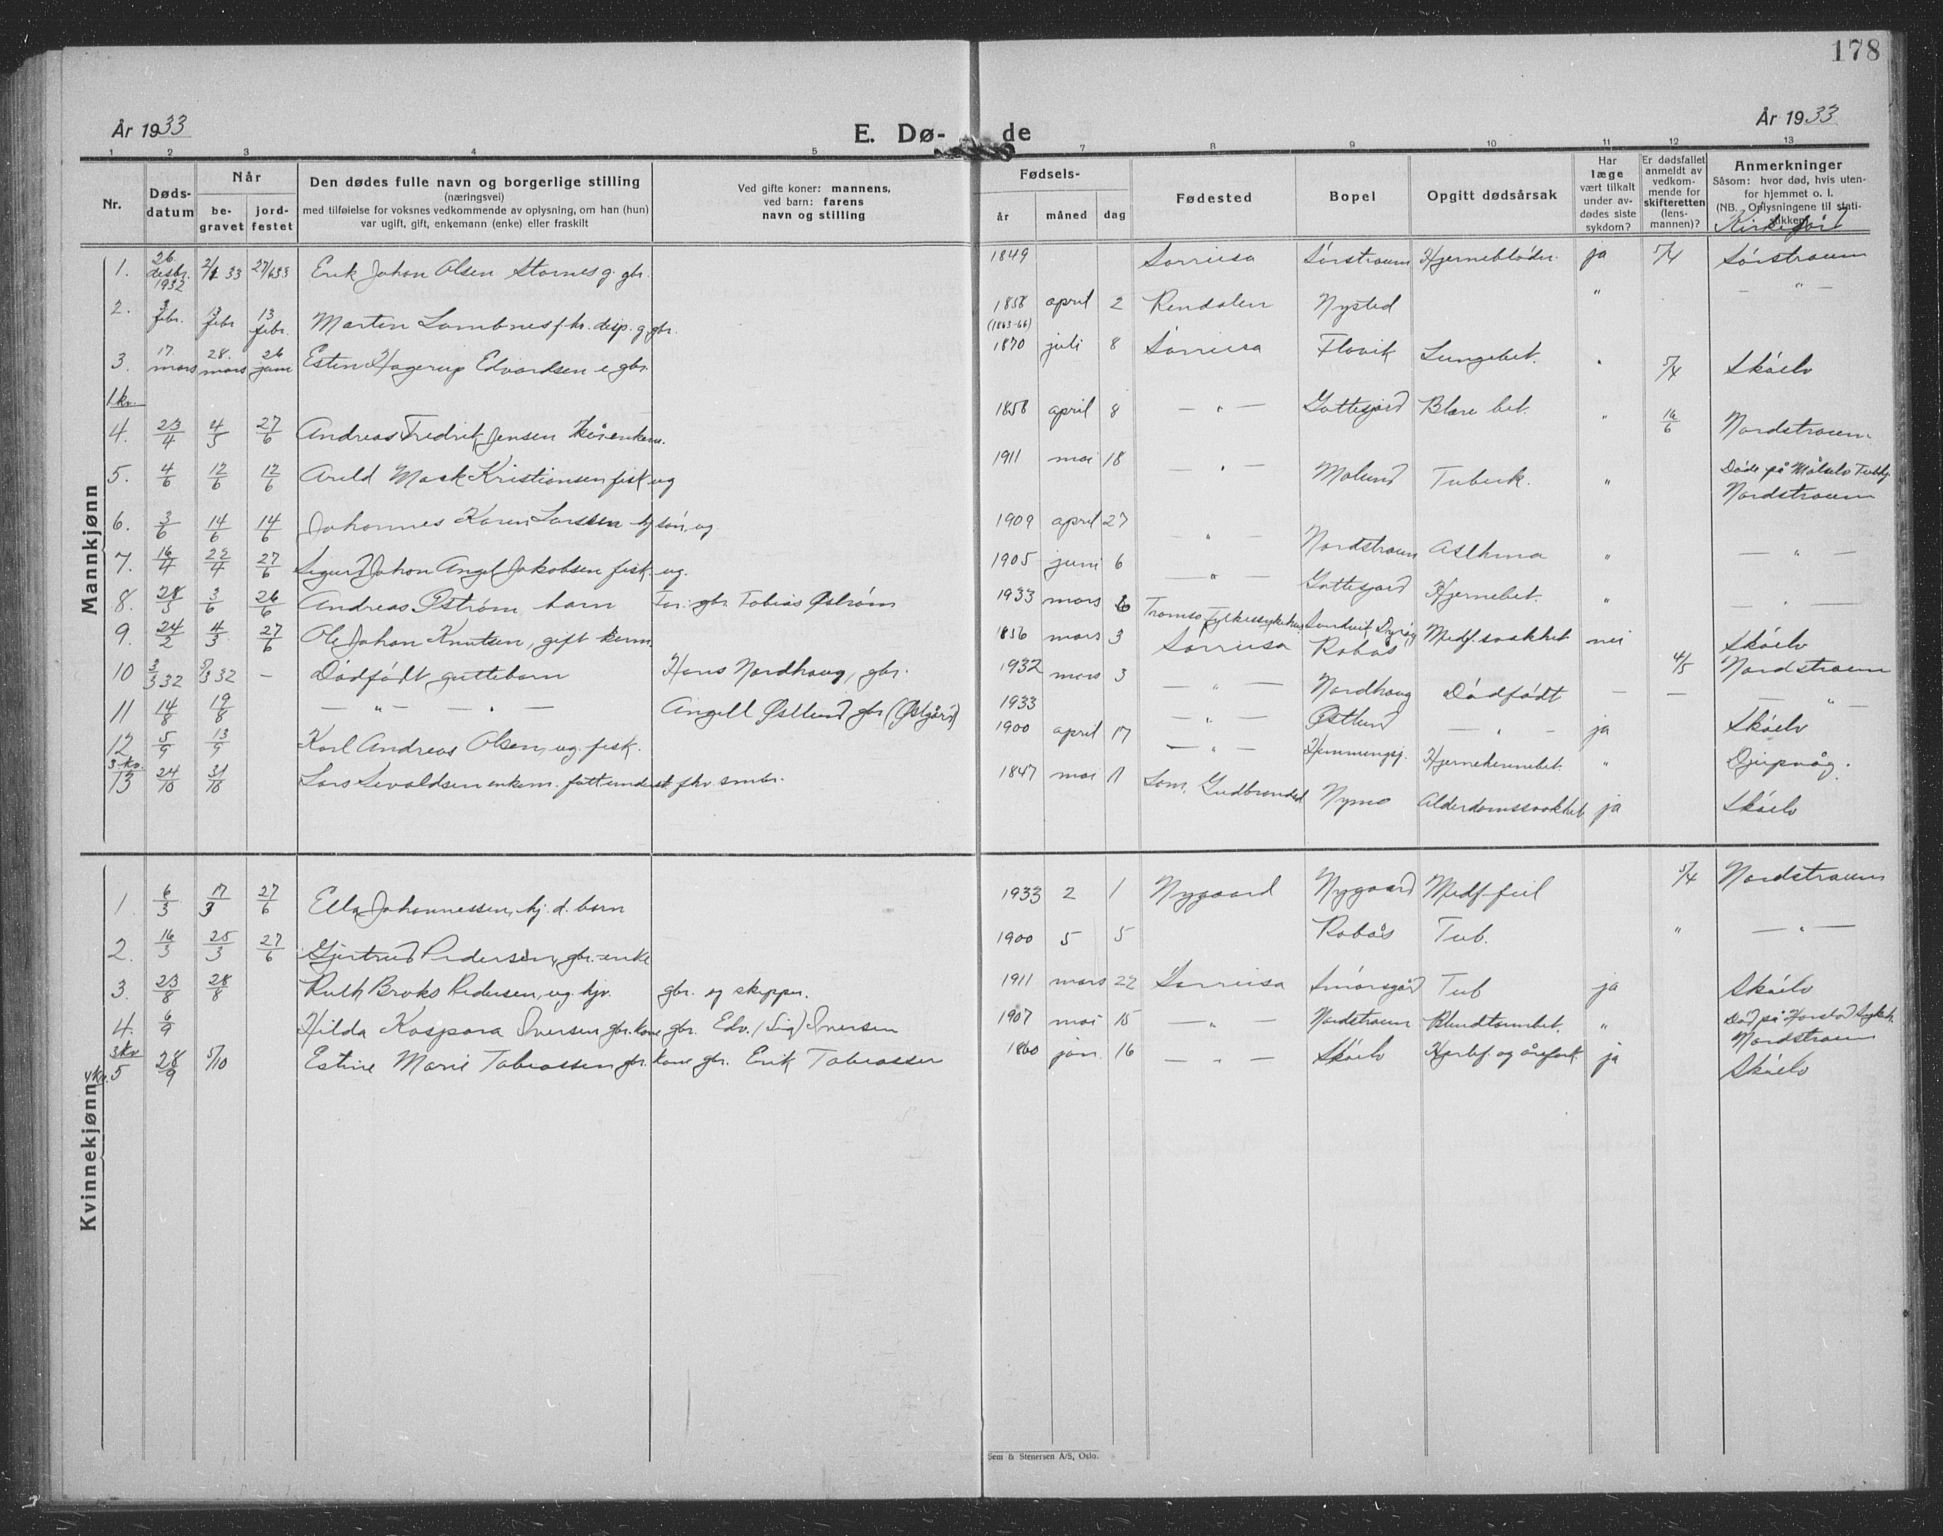 178
År 1933
E. Dø-
de
År 1933
1 2 3 4 5 7 8 9 10 11 12 13
Nr.
Døds-
datum
Når
be-
gravet
jord-
festet
Den dødes fulle navn og borgerlige stilling
(næringsvei)
med tilføielse for voksnes vedkommende av oplysning, om han (hun)
var ugift, gift, enkemann (enke) eller fraskilt
Ved gifte koner: mannens,
ved barn: farens
navn og stilling
Fødsels-
år måned dag
Fødested
Bopel
Opgitt dødsårsak
Har
læge
vært tilkalt
under av-
dødes siste
sykdom?
Er dødsfallet
anmeldt av
vedkom-
mende for
skifteretten
(lens-
mannen)?
Anmerkninger
Såsom: hvor død, hvis uten-
for hjemmet o. l.
(NB. Oplysningene til stati-
stikken)
Mannkjønn
1. 26 desbr. 1932 2/1 33 27/6 33 Erik Johan Olsen Stornes g. gbr. 1849 Sørreisa Sørstraum Hjerneblødn. ja 5/4 Sørstraum
2. 3 febr. 13 febr 13 febr. Martin Sambnes g. gbr. 1858 (1863-66) april 2 Rendalen Nysted " — " —
3. 17. mars 28. mars 26 juni Esten Hagerup Edvardsen e. gbr. 1870 juli 8 Sørreisa Flovik Lungebet. " 5/4 Skøelv
1 kv.
4. 23/4 4/5 27/6 Andreas Fredrik Jensen kårenkem. 1858 april 8 — " — Gottesjord Blære bet. " 10/6 Nordstraum
5. 4/6 12/6 12/6 Arild Mosk Kristiansen fisk. ug 1911 mai 18 — " — Molund Tuberk. " Døde på Målselv Tubhj. Nordstraum
6. 3/6 14/6 14/6 Johannes Karen Larssen hj søn, ug 1909 april 27 " Nordstraum Asthma " — " —
7. 16/4 22/4 27/6 Sigurd Johan Angel Jakobsen fisk. ug. 1905 juni 6 — " — Gottesjord Hjernebet. " — " —
8. 28/5 3/6 26/6 Andreas Østrøm barn Far: gbr. Tobias Østrøm 1933 mars 6 Tromsø Fylkessykehus Sandvik Dyrøy Medf. svakhet nei Skøelv
9. 24/2 4/3 27/6 Ole Johan Knutsen, gift kårm. 1856 mars 3 Sørreisa Robås 4/5 Nordstraum
10 3/3 32 8/3 32 — Dødfødt guttebarn Hans Nordhaug, gbr. 1932 mars 3 — " — Nordhaug Dødfødt — — — " —
11 14/8 19/8 — " — " — Angell Østlund gbr (Østgård) 1933 — " — Østlund — " — ja Skøelv
12 5/9 13/9 Karl Andreas Olsen, ug. fisk. 1900 april 17 — " — Hemmingsj. Hjernehinnebet. " Djupvåg.
3 kv.
13 24/10 31/10 Lars Sevaldsen enkem. fattunderst. fhv. smbr. 1847 mai 11 Lom, Gudbrandsd Nymo Alderdomssvakhet ja Skøelv
Kvinnekjønn
1. 6/3 17/3 27/6 Ella Johannessen, hj. d. barn 1933 2 1 Nygaard Nygaard Medf. feil 5/4 Nordstraum
2. 16/3 25/3 27/6 Gjertrud Pedersen, gbr.-enke 1900 5 5 Robås Tub. " — " —
3. 23/8 28/8 Ruth Broks Pedersen, ug. hjv. gbr. og skipper. 1911 mars 22 Sørreisa Smørsgård Tub ja Skøelv
4. 6/9 Hilda Kaspara Iversen gbr. kone gbr. Edv. (Sig) Iversen 1907 mai 15 — " — Nordstraum Blindtarmbet. " Død på Harstad Sykeh. Nordstraum
3 kv
4 kv. 5 28/9 5/10 Estine Marie Tobiassen gbr. kone gbr. Erik Tobiassen 1860 jan. 16 — " — Skøelv Hjertef. og årefork. ja Skøelv
Sem & Stenersen A/S, Oslo.